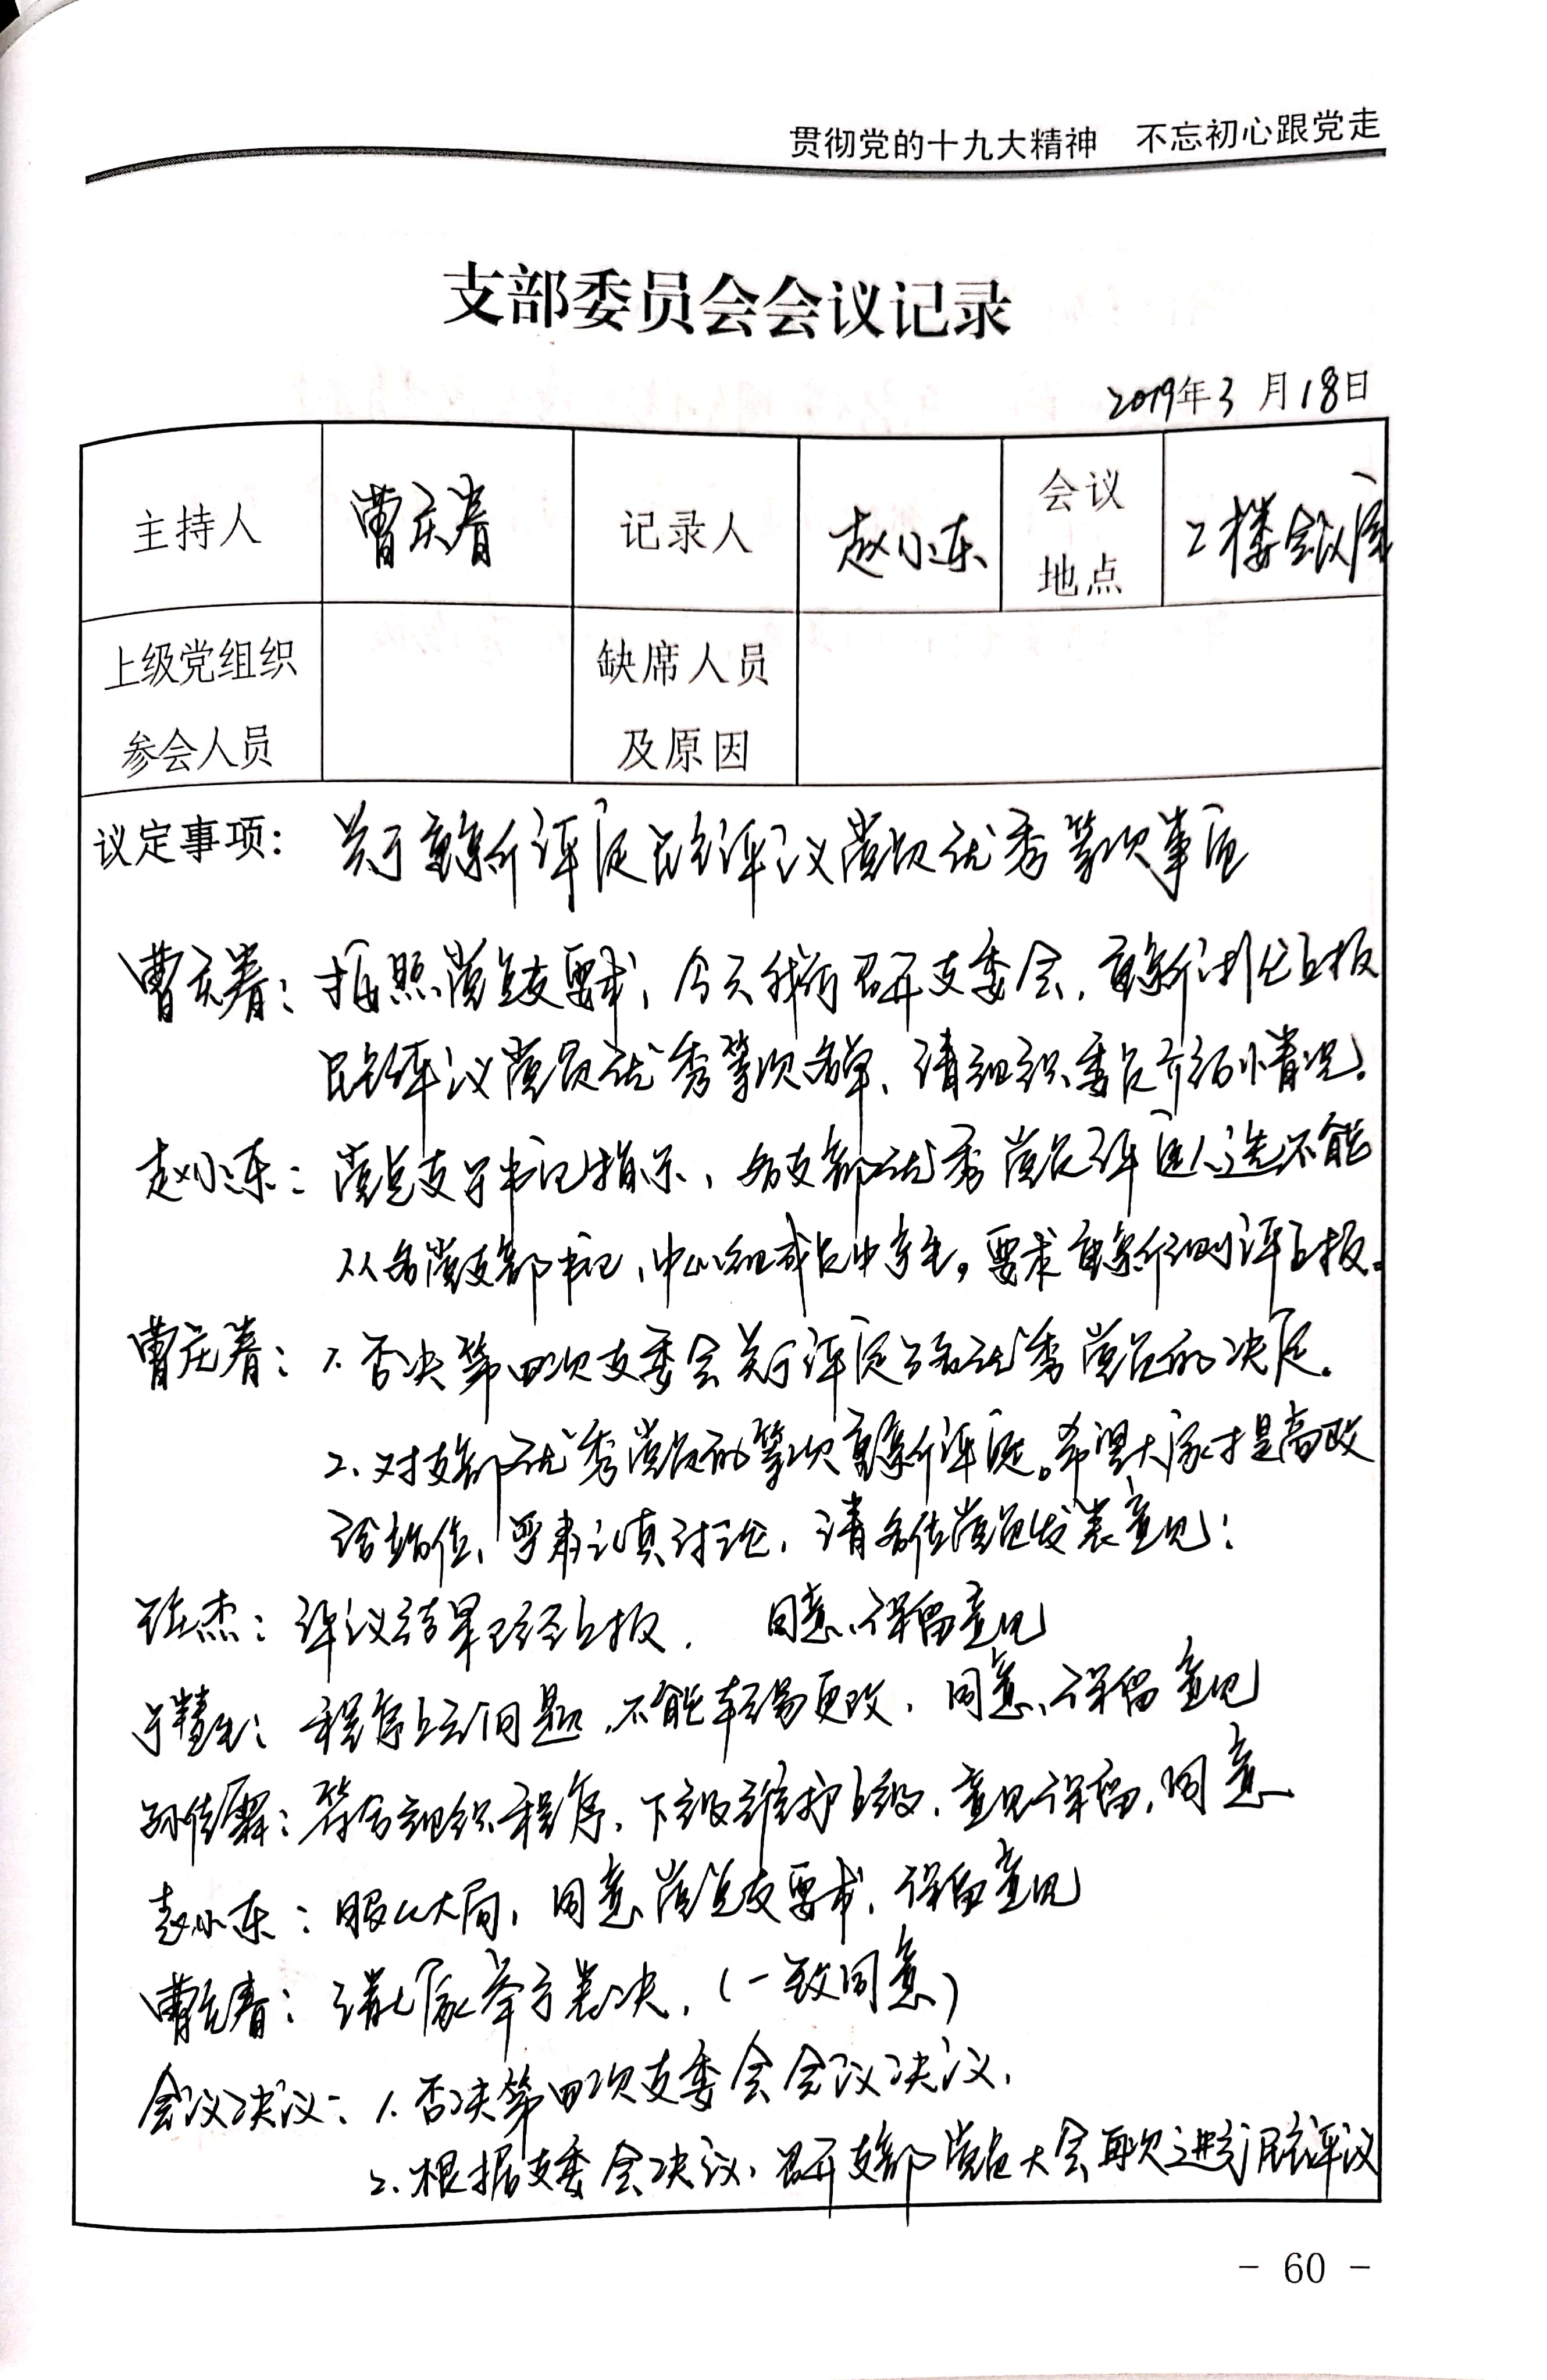 贯彻党的十九大精神 不忘初心跟党走
支部委员会会议记录
2019年3月18日
主持人 曹庆春 记录人 赵小东 会议地点 2楼会议室
上级党组织参会人员 缺席人员及原因
议定事项: 关于重新评定民主评议党员优秀等次事宜
曹庆春: 按照党总支要求,今天我们召开支委会,重新讨论上报
民主评议党员优秀等次名单,请组织委员介绍情况。
赵小东: 党总支书记指示,各支部优秀党员评定人选不能
从各党支部书记、中心组成员中产生。要求重新测评上报。
曹庆春: 1.否决第四次支委会关于评定优秀党员的决定。
2.对支部优秀党员的等次重新评定。希望大家提高政
治站位,严肃认真讨论,请各位党员发表意见:
杰: 评议结果已经上报. 同意、保留意见
程序上云问题,不能轻易更改. 同意、保留意见
孙佳霖: 符合组织程序,下级维护上级,意见保留,同意
赵小东: 服从大局,同意党总支要求,保留意见
曹庆春: 请大家举手表决,(一致同意)
会议决议: 1.否决第四次支委会会议决议,
2.根据支委会决议,召开支部党员大会再次进行民主评议
- 60 -